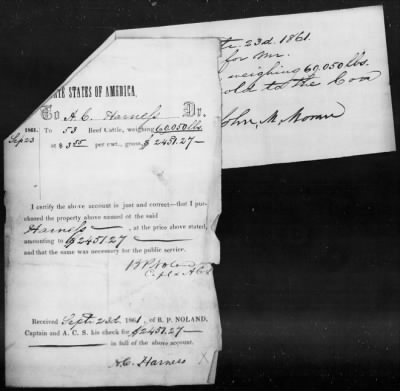 ATE STATES OF AMERICA,
To A. C. Harness Dr.
1861.
Sep 23
To 53 Beef Cattle, weighing 60,050 lbs.
at $ 3 55 per cwt., gross, $ 2451.27 —
I certify the above account is just and correct—that I pur-
chased the property above named of the said
Harness —, at the price above stated,
amounting to $2451.27 —
and that the same was necessary for the public service.
B P Noland
Capt & A C S
Received Sept 23d 1861, of B. P. NOLAND,
Captain and A. C. S. his check for $2451.27 —
in full of the above account.
A. C. Harness X
23d. 1861.
for Mr.
weighing 60,050 lbs.
old to the Con
John, M, Moran